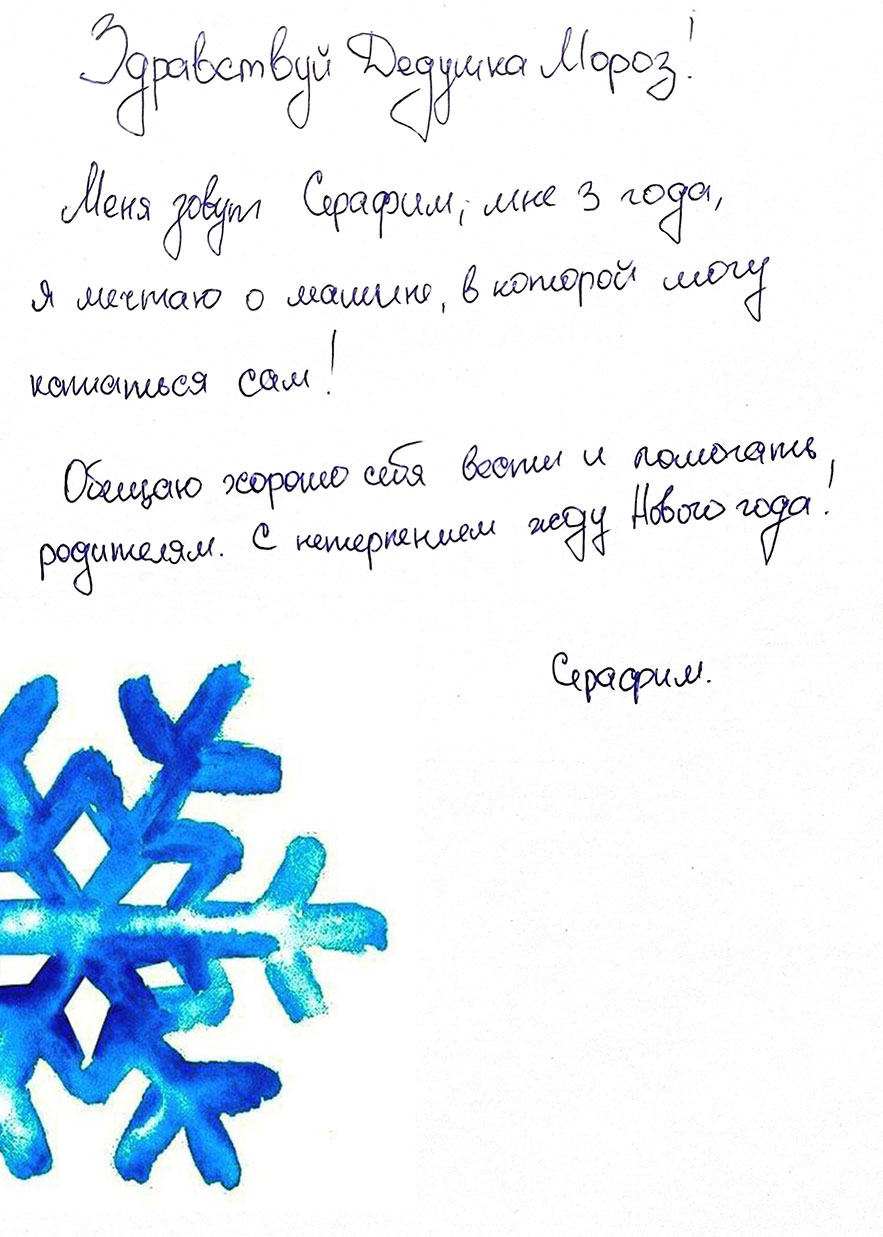 Здравствуй Дедушка Мороз!
Меня зовут Серафим, мне 3 года,
я мечтаю о машине, в которой могу
кататься сам!
Обещаю хорошо себя вести и помогать,
родителям. С нетерпением жду Нового года!
Серафим.